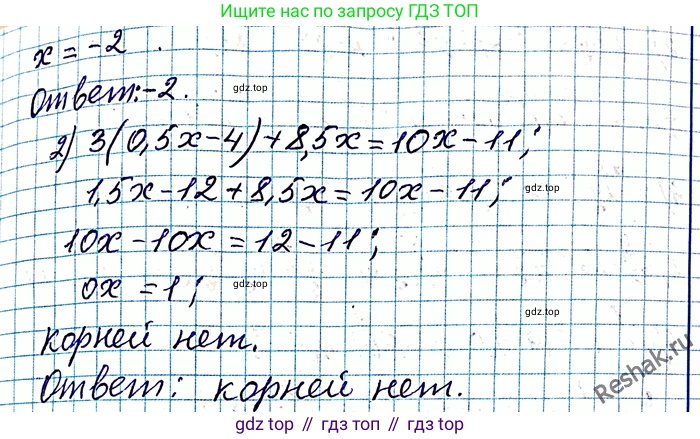 Ищите нас по запросу ГДЗ ТОП
x = -2
Ответ: -2.
gdz.top
gdz.top
2) 3(0,5x-4)+8,5x=10x-11;
1,5x-12+8,5x=10x-11;
gdz.top
10x-10x=12-11;
0x=1;
gdz.top
gdz.top
корней нет.
Ответ: корней нет.
gdz.top
gdz.top
Reshak.ru
gdz.top // гдз топ // gdz.top